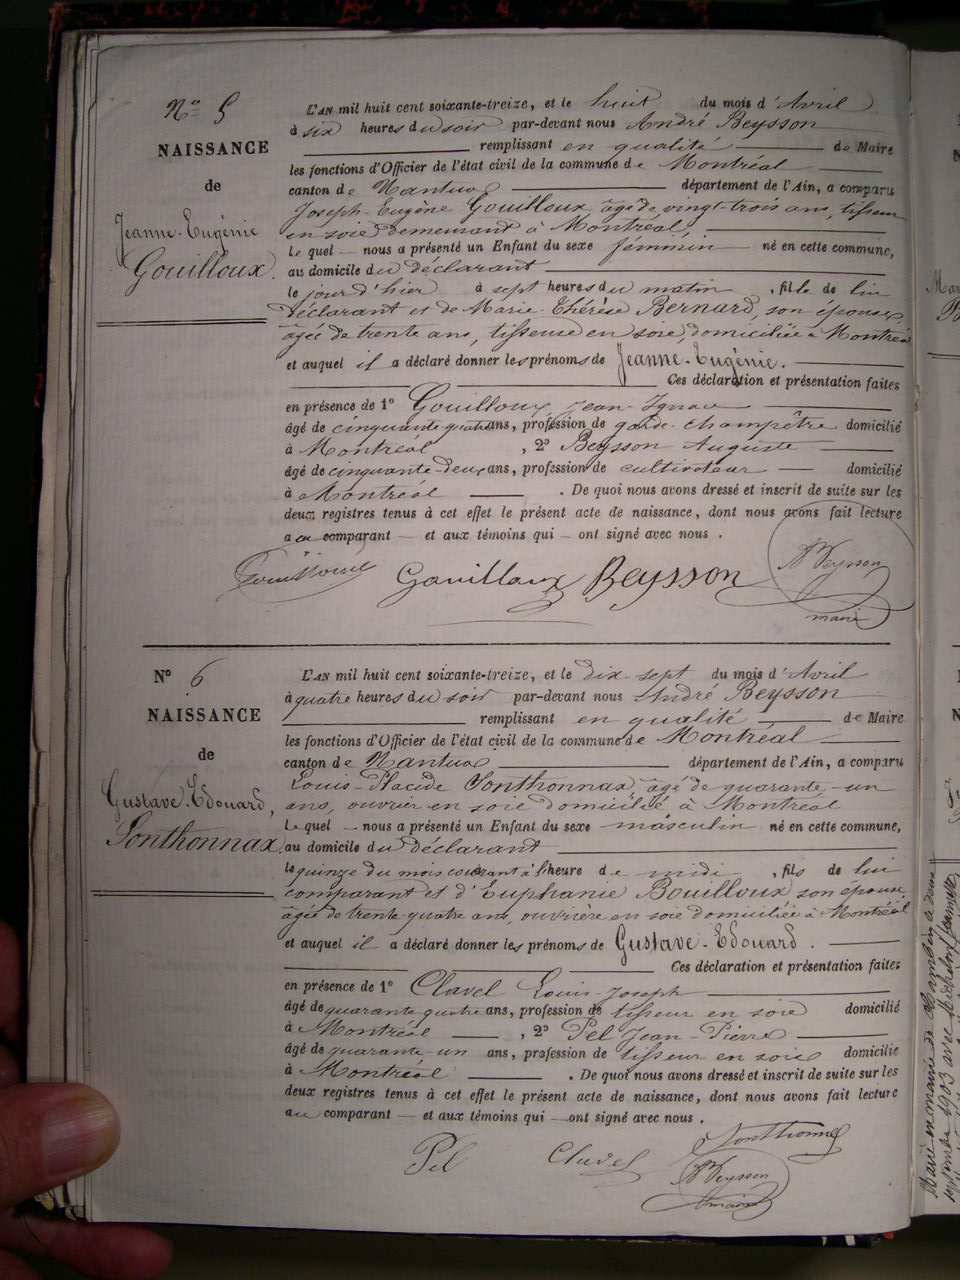 No 5
NAISSANCE
de
Jeanne-Eugénie
Gouilloux.
L'AN mil huit cent soixante-treize, et le huit du mois d'Avril
à six heures du soir par-devant nous André Beysson
remplissant en qualité de Maire
les fonctions d'Officier de l'état civil de la commune de Montréal
canton de Nantua département de l'Ain, a comparu
Joseph-Eugène Gouilloux, âgé de vingt-trois ans, tisseur
en soie demeurant à Montréal,
Le quel nous a présenté un Enfant du sexe féminin né en cette commune,
au domicile du déclarant
le jour d'hier à sept heures du matin, fille de lui
déclarant et de Marie-Thérèse Bernard, son épouse,
âgée de trente ans, tisseuse en soie, domiciliée à Montréal
et auquel il a déclaré donner les prénoms de Jeanne-Eugénie.
Ces déclaration et présentation faites
en présence de 1o Gouilloux Jean-Ignace
âgé de cinquante quatre ans, profession de garde-champêtre domicilié
à Montréal, 2o Beysson Auguste
âgé de cinquante-deux ans, profession de cultivateur domicilié
à Montréal. De quoi nous avons dressé et inscrit de suite sur les
deux registres tenus à cet effet le présent acte de naissance, dont nous avons fait lecture
au comparant et aux témoins qui ont signé avec nous.
Gouilloux Gouilloux Beysson A Beysson
maire
No 6
NAISSANCE
de
Gustave-Edouard,
Sonthonnax.
L'AN mil huit cent soixante-treize, et le dix-sept du mois d'Avril
à quatre heures du soir par-devant nous André Beysson
remplissant en qualité de Maire
les fonctions d'Officier de l'état civil de la commune de Montréal
canton de Nantua département de l'Ain, a comparu
Louis-Placide Sonthonnax, âgé de quarante-un
ans, ouvrier en soie domicilié à Montréal
Le quel nous a présenté un Enfant du sexe masculin né en cette commune,
au domicile du déclarant
le quinze du mois courant à l'heure de midi, fils de lui
comparant et d'Euphanie Bouilloux son épouse
âgée de trente-quatre ans, ouvrière en soie domiciliée à Montréal
et auquel il a déclaré donner les prénoms de Gustave-Edouard.
Ces déclaration et présentation faites
en présence de 1o Clavel Louis-Joseph
âgé de quarante quatre ans, profession de tisseur en soie domicilié
à Montréal, 2o Pel Jean-Pierre
âgé de quarante-un ans, profession de tisseur en soie domicilié
à Montréal. De quoi nous avons dressé et inscrit de suite sur les
deux registres tenus à cet effet le présent acte de naissance, dont nous avons fait lecture
au comparant et aux témoins qui ont signé avec nous.
Pel Clavel Sonthonnax
A Beysson
maire